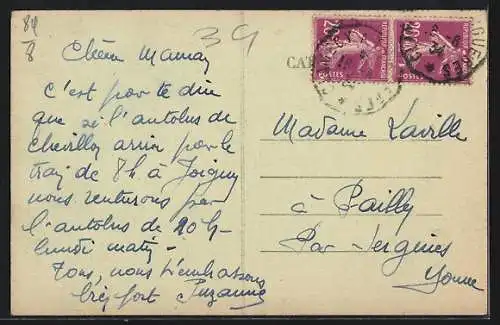 84
8
39
Chère Maman
C'est pour te dire
que si l'autobus de
Chevillon arrive pour le
train de 7h à Joigny
nous rentrerons par
l'autobus de 20h
lundi matin -
Tous, nous t'embrassons
bien fort Suzanne
CAR
POSTES
POSTES
Madame Laville
à Pailly
Par Sergines
Yonne